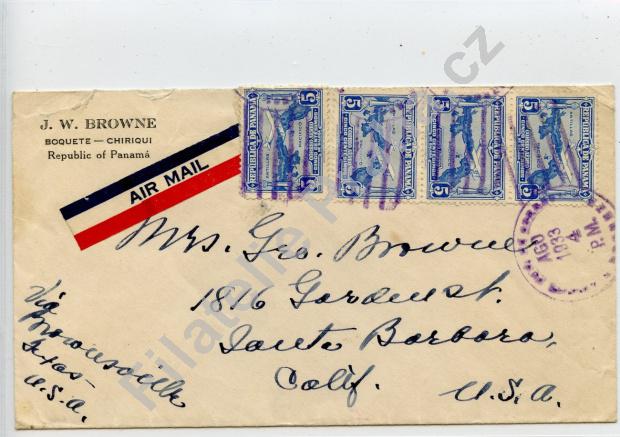 J. W. BROWNE
BOQUETE — CHIRIQUI
Republic of Panamá
AIR MAIL
5 REPUBLICA DE PANAMA 5
5 REPUBLICA DE PANAMA 5
5 REPUBLICA DE PANAMA 5
5 REPUBLICA DE PANAMA 5
AGO
4
1933
P.M.
Mrs. Geo. Browne
1816 Garden st.
Santa Barbara,
Calif. U.S.A.
Via
Brownsville
Texas
U.S.A.